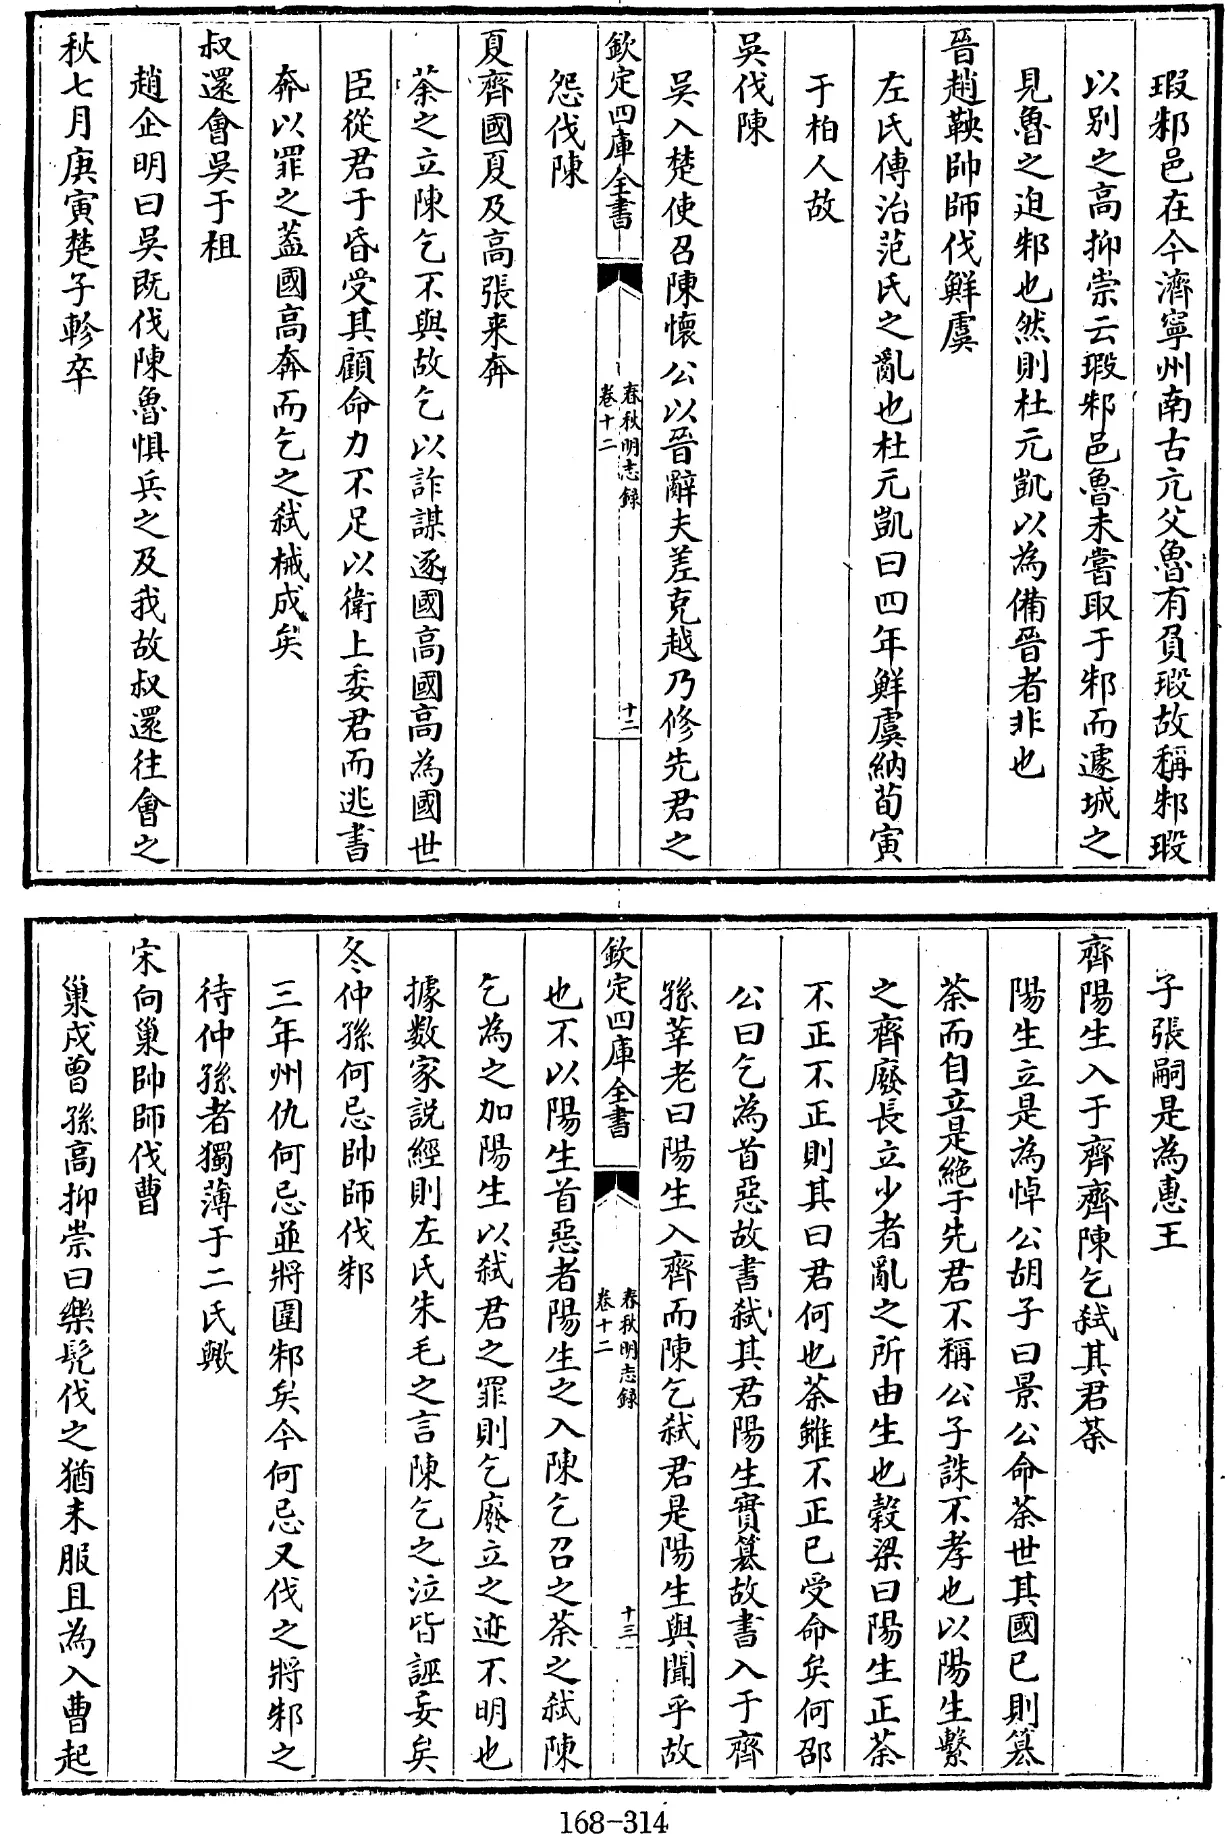 瑕邾邑在今濟寧州南古亢父魯有負瑕故稱邾瑕
以別之高抑崇云瑕邾邑魯未嘗取于邾而遽城之
見魯之迫邾也然則杜元凱以為備晉者非也
晉趙鞅帥師伐鮮虞
左氏傳治范氏之亂也杜元凱曰四年鮮虞納荀寅
于柏人故
吳伐陳
吳入楚使召陳懷公以晉辭夫差克越乃修先君之
欽定四庫全書
春秋明志錄
卷十二
十二
怨伐陳
夏齊國夏及高張来奔
荼之立陳乞不與故乞以詐謀逐國高國高為國世
臣從君于昏受其顧命力不足以衛上委君而逃書
奔以罪之葢國高奔而乞之弒械成矣
叔還會吳于柤
趙企明曰吳既伐陳魯惧兵之及我故叔還往會之
秋七月庚寅楚子軫卒
子張嗣是為惠王
齊陽生入于齊齊陳乞弒其君荼
陽生立是為悼公胡子曰景公命荼世其國已則篡
荼而自立是絶于先君不稱公子誅不孝也以陽生繫
之齊廢長立少者亂之所由生也穀梁曰陽生正荼
不正不正則其曰君何也荼雖不正已受命矣何邵
公曰乞為首惡故書弒其君陽生實篡故書入于齊
孫莘老曰陽生入齊而陳乞弒君是陽生與聞乎故
欽定四庫全書
春秋明志錄
卷十二
十三
也不以陽生首惡者陽生之入陳乞召之荼之弒陳
乞為之加陽生以弒君之罪則乞廢立之迹不明也
據数家説經則左氏朱毛之言陳乞之泣皆誣妄矣
冬仲孫何忌帥師伐邾
三年州仇何忌並將圍邾矣今何忌又伐之將邾之
待仲孫者獨薄于二氏歟
宋向巢帥師伐曹
巢戍曾孫高抑崇曰樂髠伐之猶未服且為入曹起
168-314